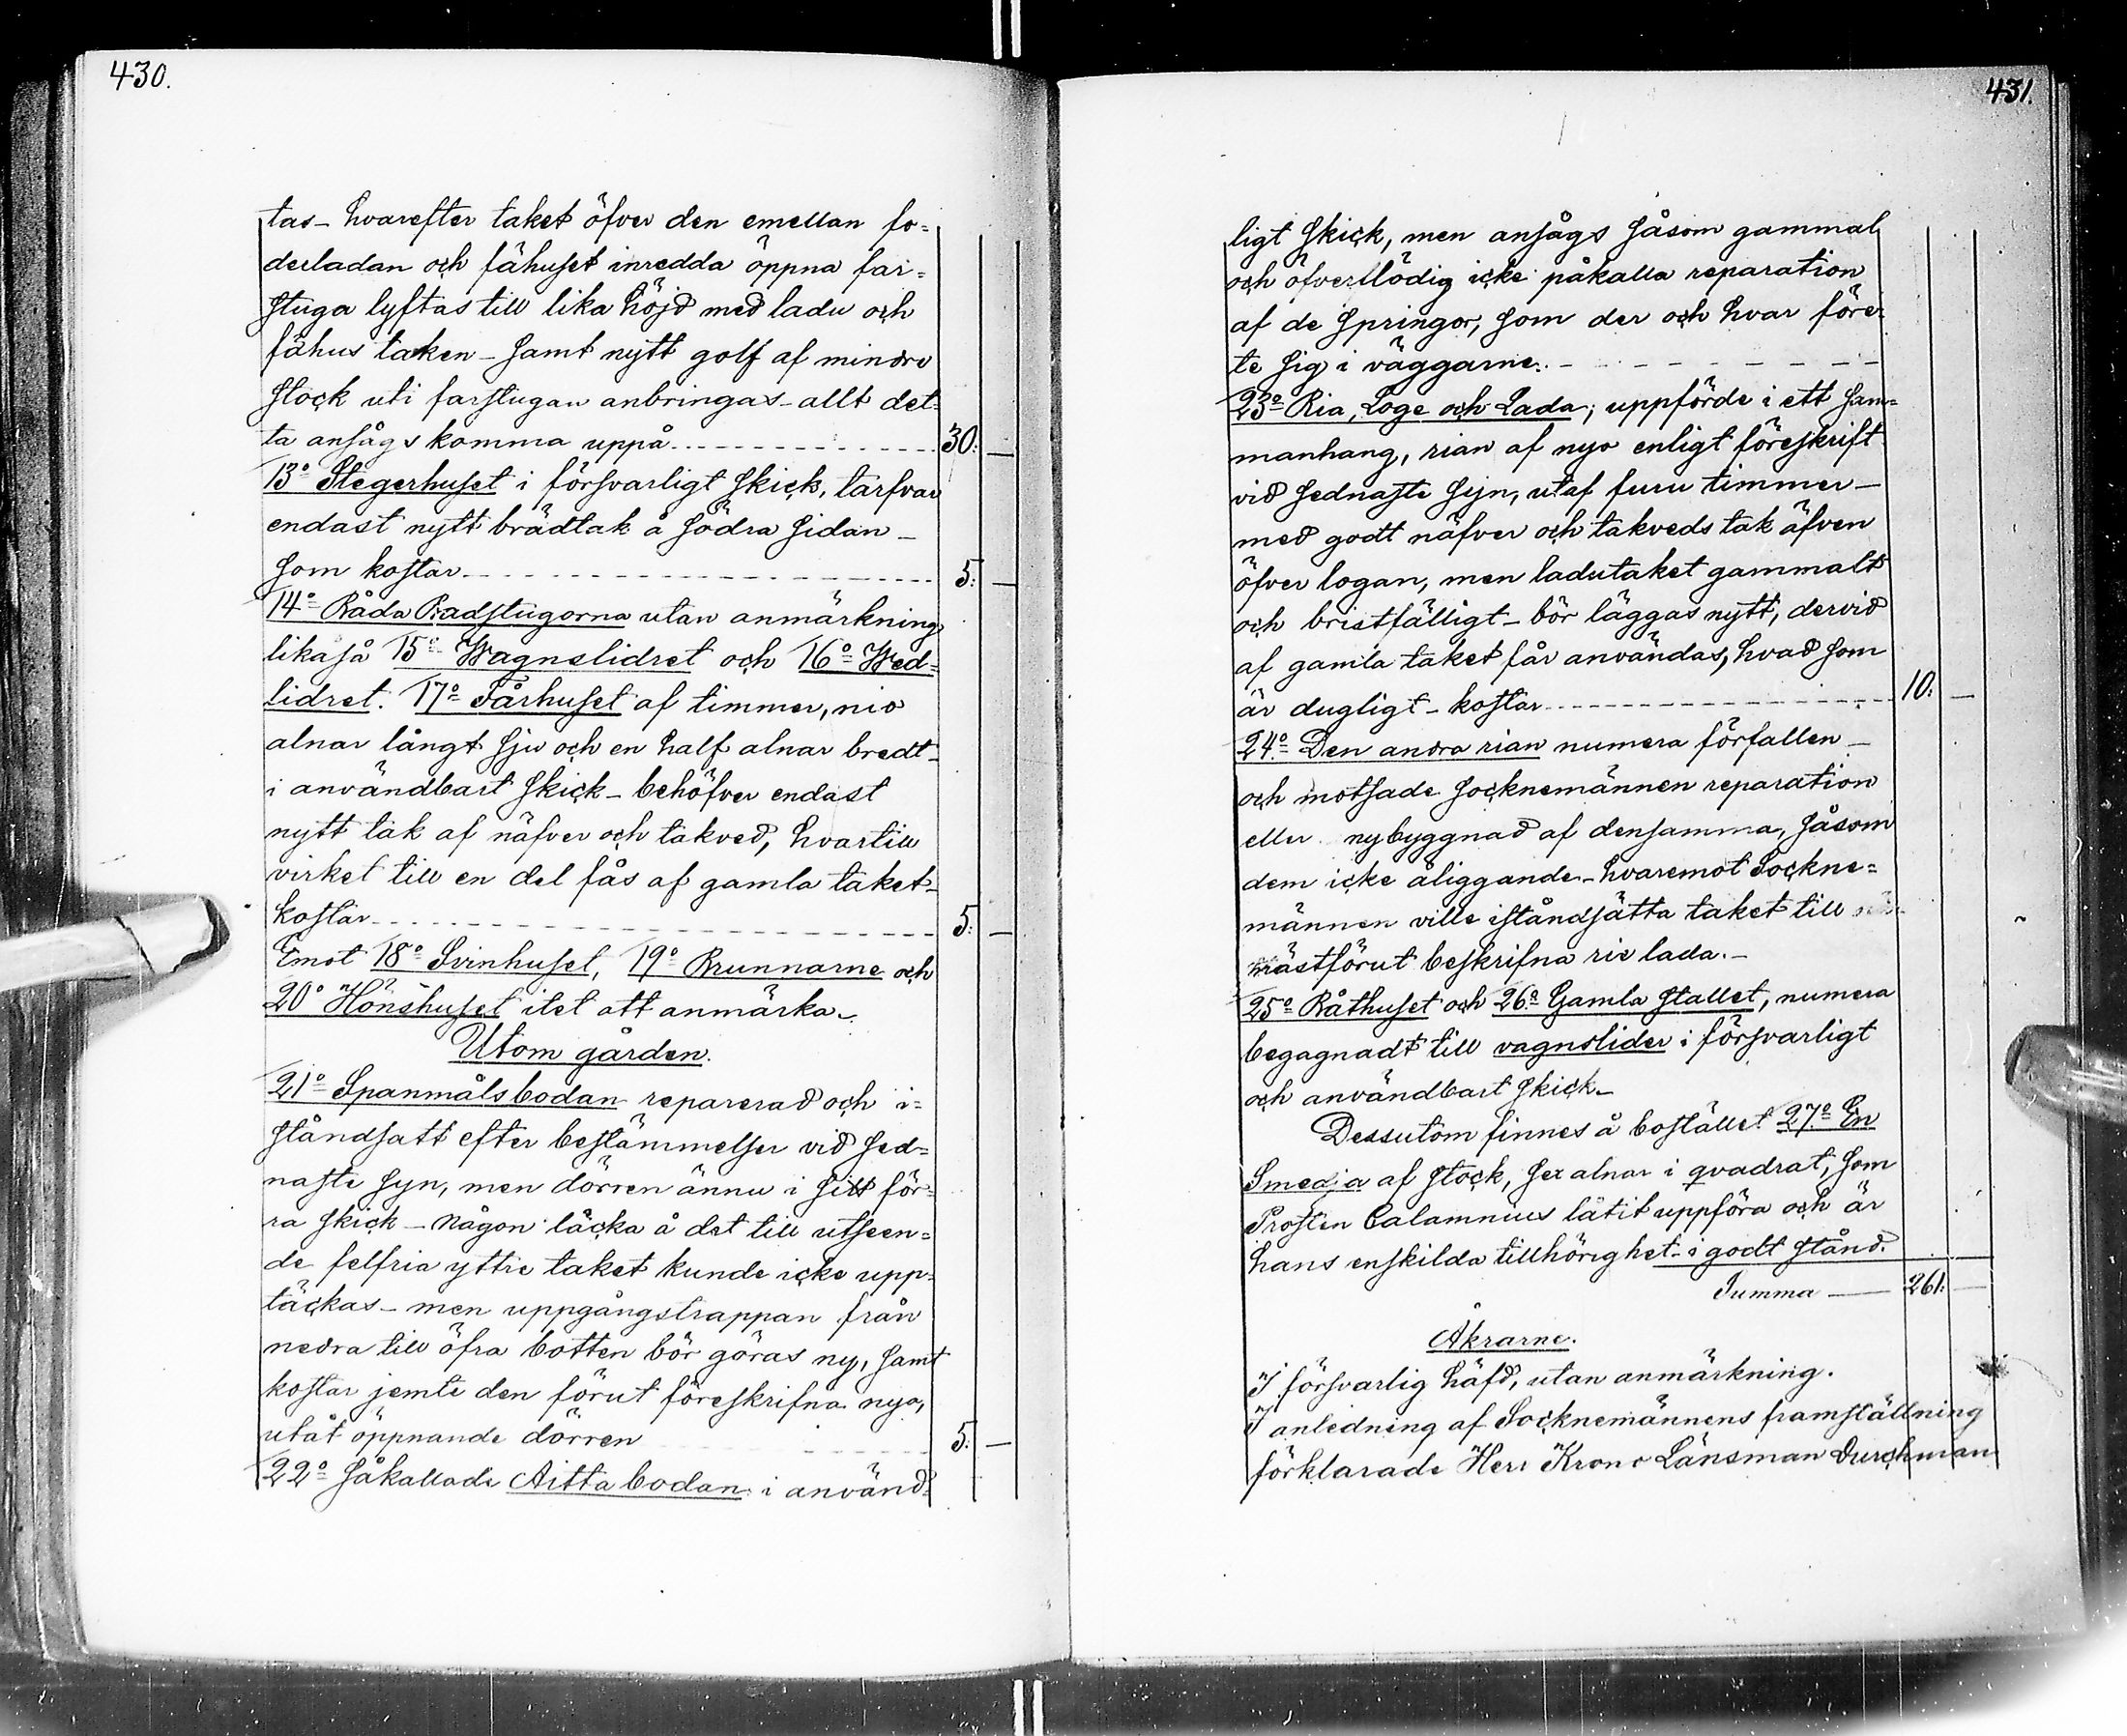 430.
tas - hvarefter taket öfver den emellan fo=
derladan och fähuset inredda öppna far=
stuga lyftas till lika höjd med ladu och
fähus taken - samt nytt golf af mindre
stock uti farstugan anbringas - allt det=
ta ansågs komma uppå 30. —
13o Stegerhuset i försvarligt skick, tarfvar
endast nytt brädtak å södra sidan -
som kostar 5. —
14o Båda Badstugorna utan anmärkning
likaså 15o Wagnslidret och 16o Wed=
lidret. 17o Fårhuset af timmer, nio
alnar långt sju och en half alnar bredt -
i användbart skick - behöfver endast
nytt tak af näfver och takved, hvartill
virket till en del fås af gamla taket -
kostar 5. —
Emot 18o Svinhuset, 19o Brunnarne och
20o Hönshuset itet att anmärka.
Utom gården.
21o Spanmålsbodan reparerad och i=
ståndsatt efter bestämmelser vid sed=
naste syn, men dörren ännu i sitt för=
ra skick - någon läcka å det till utseen=
de felfria yttre taket kunde icke upp=
täckas - men uppgångstrappan från
nedra till öfra botten bör göras ny, samt
kostar jemte den förut föreskrifna nya,
utåt öppnande dörren 5. —
22o såkallade Aitta bodan i använd=
431.
ligt skick, men ansågs såsom gammal
och öfverflödig icke påkalla reparation
af de springor, som der och hvar före=
te sig i väggarne.
23o Ria, Loge och Lada; uppförde i ett sam=
manhang, rian af nyo enligt föreskrift
vid sednaste syn, utaf furu timmer -
med godt näfver och takveds tak äfven
öfver logan, men ladutaket gammalt
och bristfälligt - bör läggas nytt, dervid
af gamla taket får användas, hvad som
är dugligt - kostar 10. —
24o Den andra rian numera förfallen -
och motsade socknemännen reparation
eller nybyggnad af densamma, såsom
dem icke åliggande - hvaremot Sockne=
männen ville iståndsätta taket till
nästförut beskrifna rie lada. -
25o Båthuset och 26o Gamla stallet, numera
begagnadt till vagnslider i försvarligt
och användbart skick -
Dessutom finnes å bostället 27o En
Smedja af stock, sex alnar i qvadrat, som
Prosten Calamnius låtit uppföra och är
hans enskilda tillhörighet - i godt stånd.
Summa — 261. —
Åkrarne.
I försvarlig häfd, utan anmärkning.
I anledning af Socknemännens framställning
förklarade Herr Krono Länsman Durchman